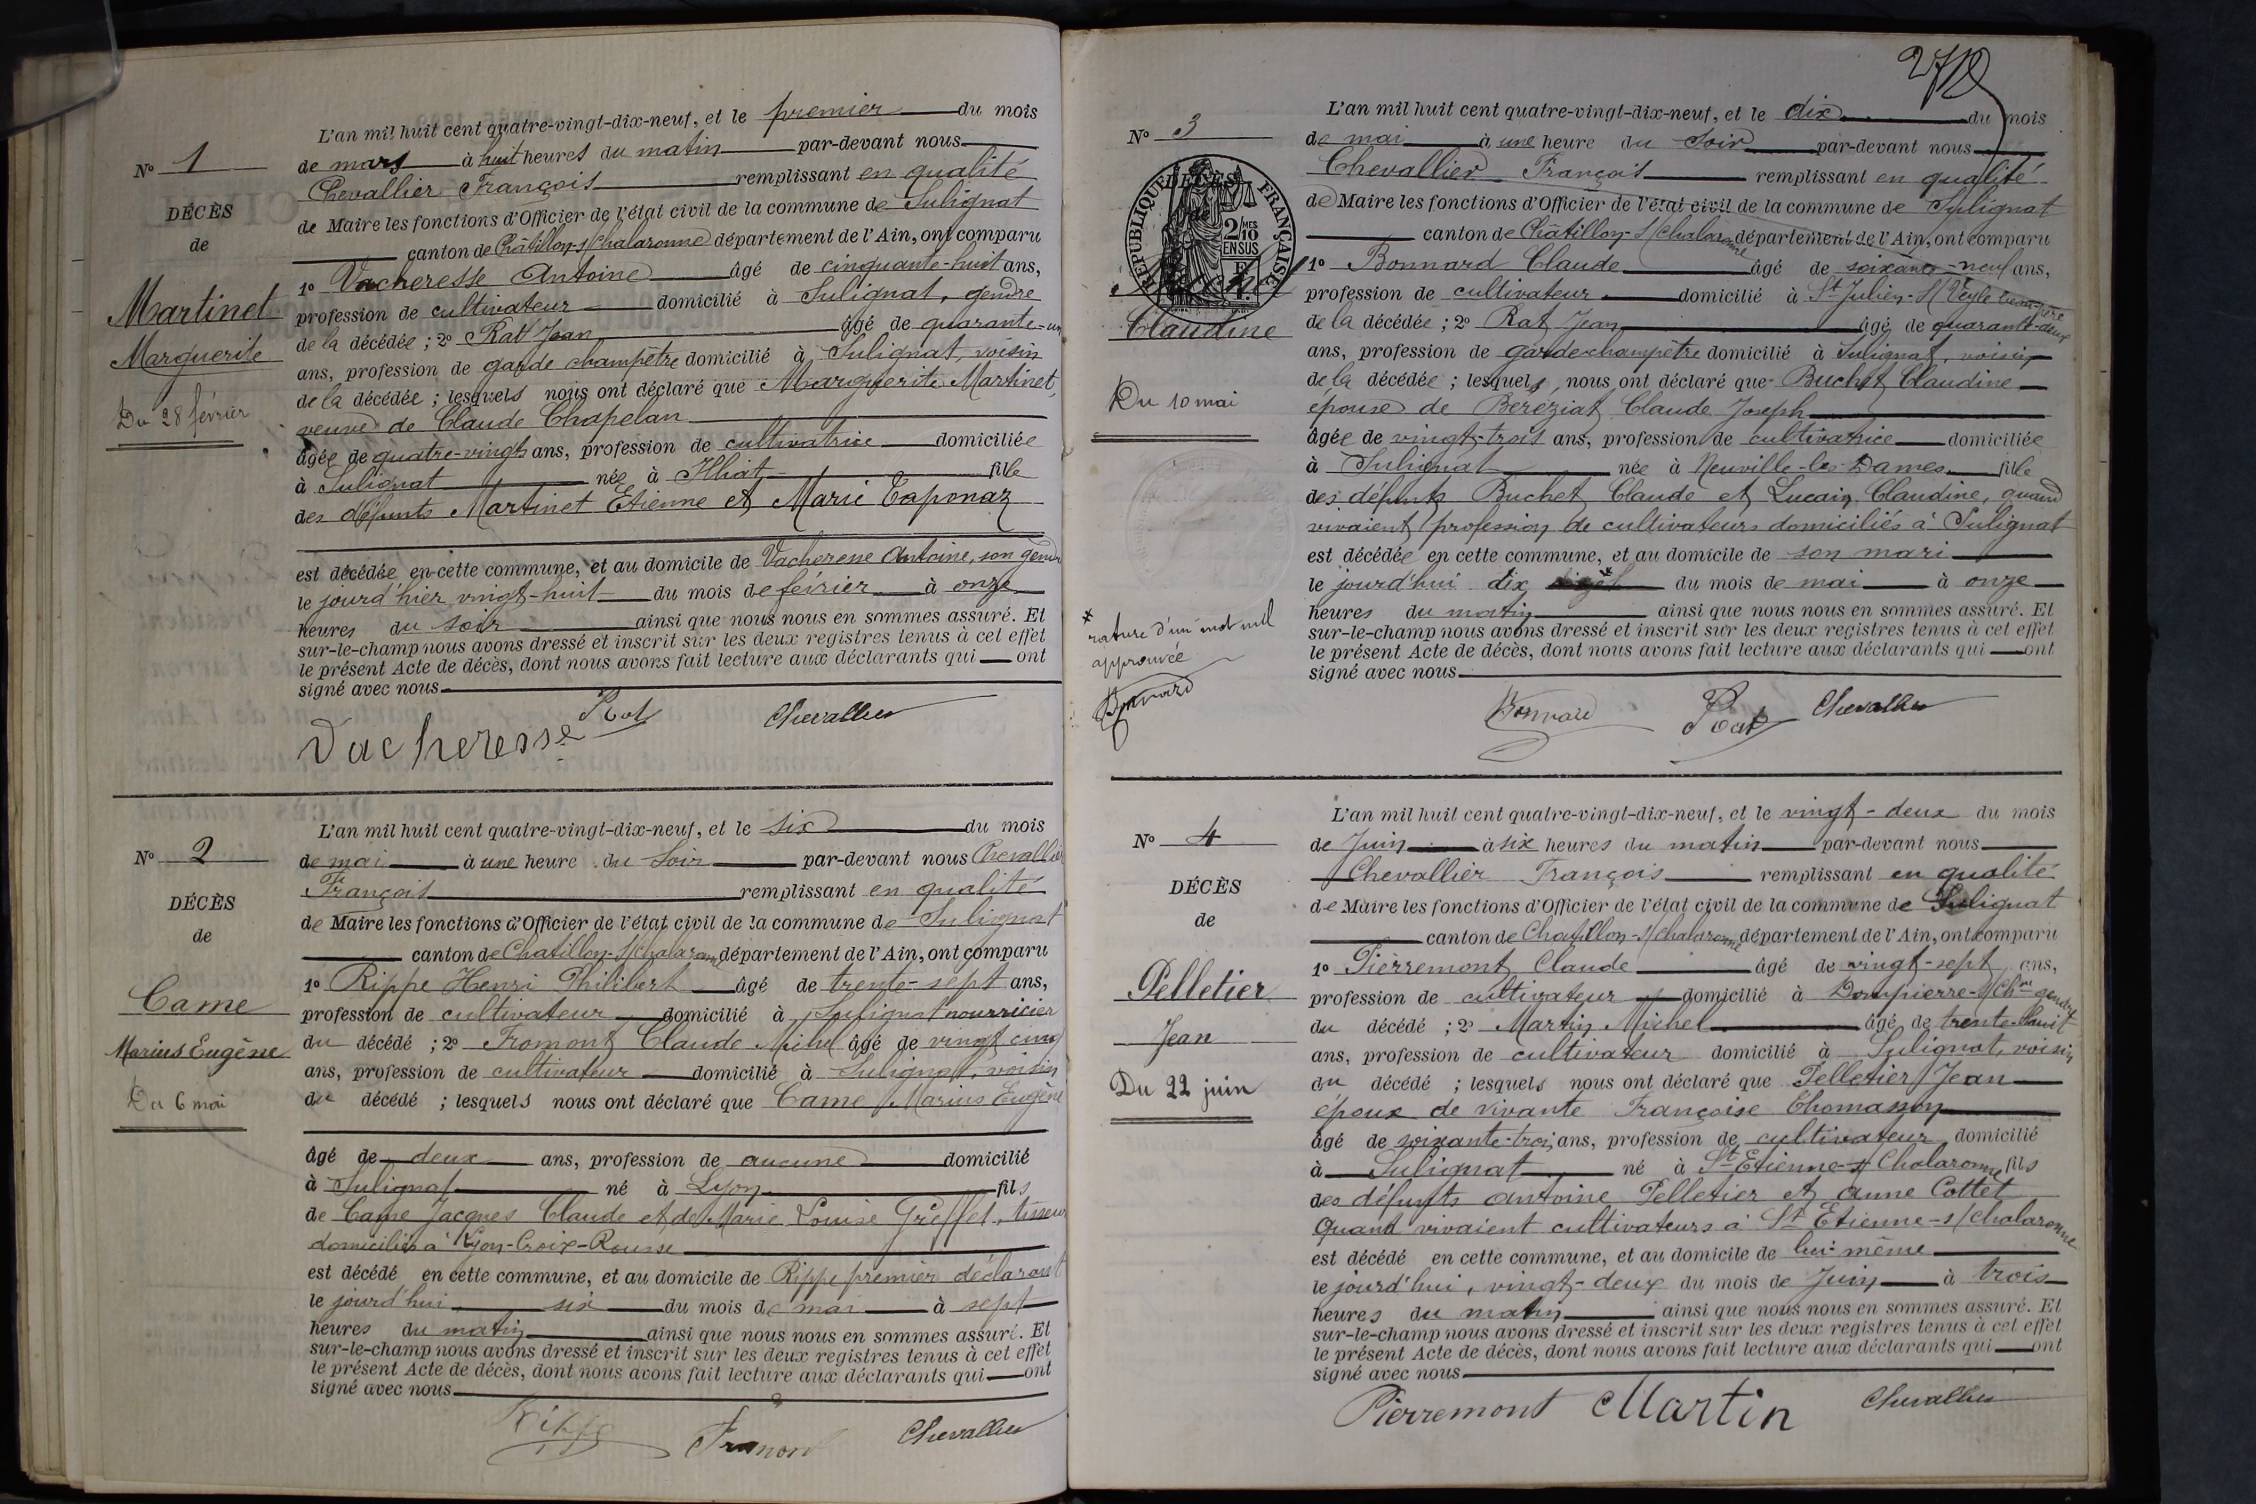 N° 1
DÉCÈS
de
Martinet
Marguerite
Du 28 février
L'an mil huit cent quatre-vingt-dix-neuf, et le premier du mois
de mars à huit heures du matin par-devant nous
Chevallier François remplissant en qualité
de Maire les fonctions d'Officier de l'état civil de la commune de Sulignat
canton de Châtillon-s/Chalaronne département de l'Ain, ont comparu
1° Vacheresse Antoine âgé de cinquante-huit ans,
profession de cultivateur domicilié à Sulignat, gendre
de la décédée ; 2° Rat Jean âgé de quarante-un
ans, profession de garde champêtre domicilié à Sulignat, voisin
de la décédée ; lesquels nous ont déclaré que Marguerite Martinet,
veuve de Claude Chapelan
âgée de quatre-vingts ans, profession de cultivatrice domiciliée
à Sulignat née à Illiat fille
des défunts Martinet Etienne et Marie Taponaz
est décédée en cette commune, et au domicile de Vacheresse Antoine, son gendre
le jourd'hier vingt-huit du mois de février à onze
heures du soir ainsi que nous nous en sommes assuré. Et
sur-le-champ nous avons dressé et inscrit sur les deux registres tenus à cet effet
le présent Acte de décès, dont nous avons fait lecture aux déclarants qui ont
signé avec nous
Vacheresse Rat Chevallier
N° 2
DÉCÈS
de
Came
Marius Eugène
Du 6 mai
L'an mil huit cent quatre-vingt-dix-neuf, et le six du mois
de mai à une heure du soir par-devant nous Chevallier
François remplissant en qualité
de Maire les fonctions d'Officier de l'état civil de la commune de Sulignat
canton de Chatillon-s/Chalaronne département de l'Ain, ont comparu
1° Rippe Henri Philibert âgé de trente-sept ans,
profession de cultivateur domicilié à Sulignat nourricier
du décédé ; 2° Fromont Claude Michel âgé de vingt cinq
ans, profession de cultivateur domicilié à Sulignat, voisin
du décédé ; lesquels nous ont déclaré que Came Marius Eugène
âgé de deux ans, profession de aucune domicilié
à Sulignat né à Lyon fils
de Came Jacques Claude et de Marie Louise Greffet, tisseurs
domiciliés à Lyon-Croix-Rousse
est décédé en cette commune, et au domicile de Rippe premier déclarant
le jourd'hui six du mois de mai à sept
heures du matin ainsi que nous nous en sommes assuré. Et
sur-le-champ nous avons dressé et inscrit sur les deux registres tenus à cet effet
le présent Acte de décès, dont nous avons fait lecture aux déclarants qui ont
signé avec nous
Rippe Fromont Chevallier
N° 3
DÉCÈS
RÉPUBLIQUE FRANÇAISE
2/10 MES
EN SUS
Claudine
Du 10 mai
* rature d'un mot nul
approuvée
Bonnard
L'an mil huit cent quatre-vingt-dix-neuf, et le dix du mois
de mai à une heure du soir par-devant nous
Chevallier François remplissant en qualité
de Maire les fonctions d'Officier de l'état civil de la commune de Sulignat
canton de Châtillon-s/Chalaronne département de l'Ain, ont comparu
1° Bonnard Claude âgé de soixante-neuf ans,
profession de cultivateur domicilié à St Julien-s/Veyle beau-père
de la décédée ; 2° Rat Jean âgé de quarante-deux
ans, profession de garde champêtre domicilié à Sulignat, voisin
de la décédée ; lesquels nous ont déclaré que Buchet Claudine
épouse de Beréziat Claude Joseph
âgée de vingt-trois ans, profession de cultivatrice domiciliée
à Sulignat née à Neuville-les-Dames fille
des défunts Buchet Claude et Lucain Claudine, quand
vivaient profession de cultivateurs domiciliés à Sulignat
est décédée en cette commune, et au domicile de son mari
le jourd'hui dix * du mois de mai à onze
heures du matin ainsi que nous nous en sommes assuré. Et
sur-le-champ nous avons dressé et inscrit sur les deux registres tenus à cet effet
le présent Acte de décès, dont nous avons fait lecture aux déclarants qui ont
signé avec nous
Bonnard Rat Chevallier
N° 4
DÉCÈS
de
Pelletier
Jean
Du 22 juin
L'an mil huit cent quatre-vingt-dix-neuf, et le vingt-deux du mois
de Juin à six heures du matin par-devant nous
Chevallier François remplissant en qualité
de Maire les fonctions d'Officier de l'état civil de la commune de Sulignat
canton de Chatillon-s/Chalaronne département de l'Ain, ont comparu
1° Pierremont Claude âgé de vingt-sept ans,
profession de cultivateur domicilié à Dompierre-s/Chne gendre
du décédé ; 2° Martin Michel âgé de trente-huit
ans, profession de cultivateur domicilié à Sulignat, voisin
du décédé ; lesquels nous ont déclaré que Pelletier Jean
époux de vivante Françoise Thomasson
âgé de soixante-trois ans, profession de cultivateur domicilié
à Sulignat né à St Etienne-s/Chalaronne fils
des défunts Antoine Pelletier et Anne Cottet
Quand vivaient cultivateurs à St Etienne-s/Chalaronne
est décédé en cette commune, et au domicile de lui-même
le jourd'hui, vingt-deux du mois de Juin à trois
heures du matin ainsi que nous nous en sommes assuré. Et
sur-le-champ nous avons dressé et inscrit sur les deux registres tenus à cet effet
le présent Acte de décès, dont nous avons fait lecture aux déclarants qui ont
signé avec nous
Pierremont Martin Chevallier